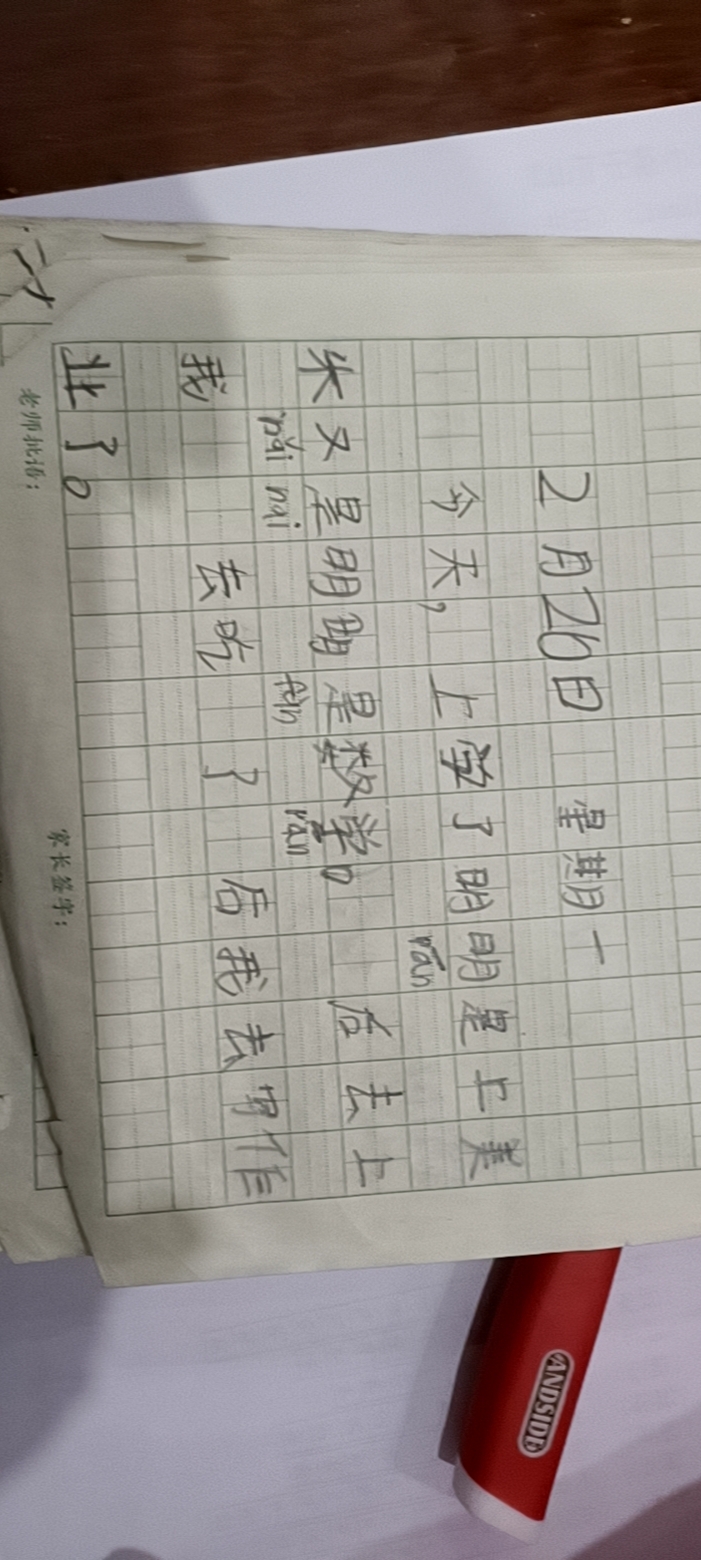 2月26日 星期一
今天，上学了明明是上美
rán
术又是明明是数学。 后去上
nǎi nai fàn rán
我 去吃 了 后我去写作
业了。
老师批语： 家长签字：
ANDSIDE